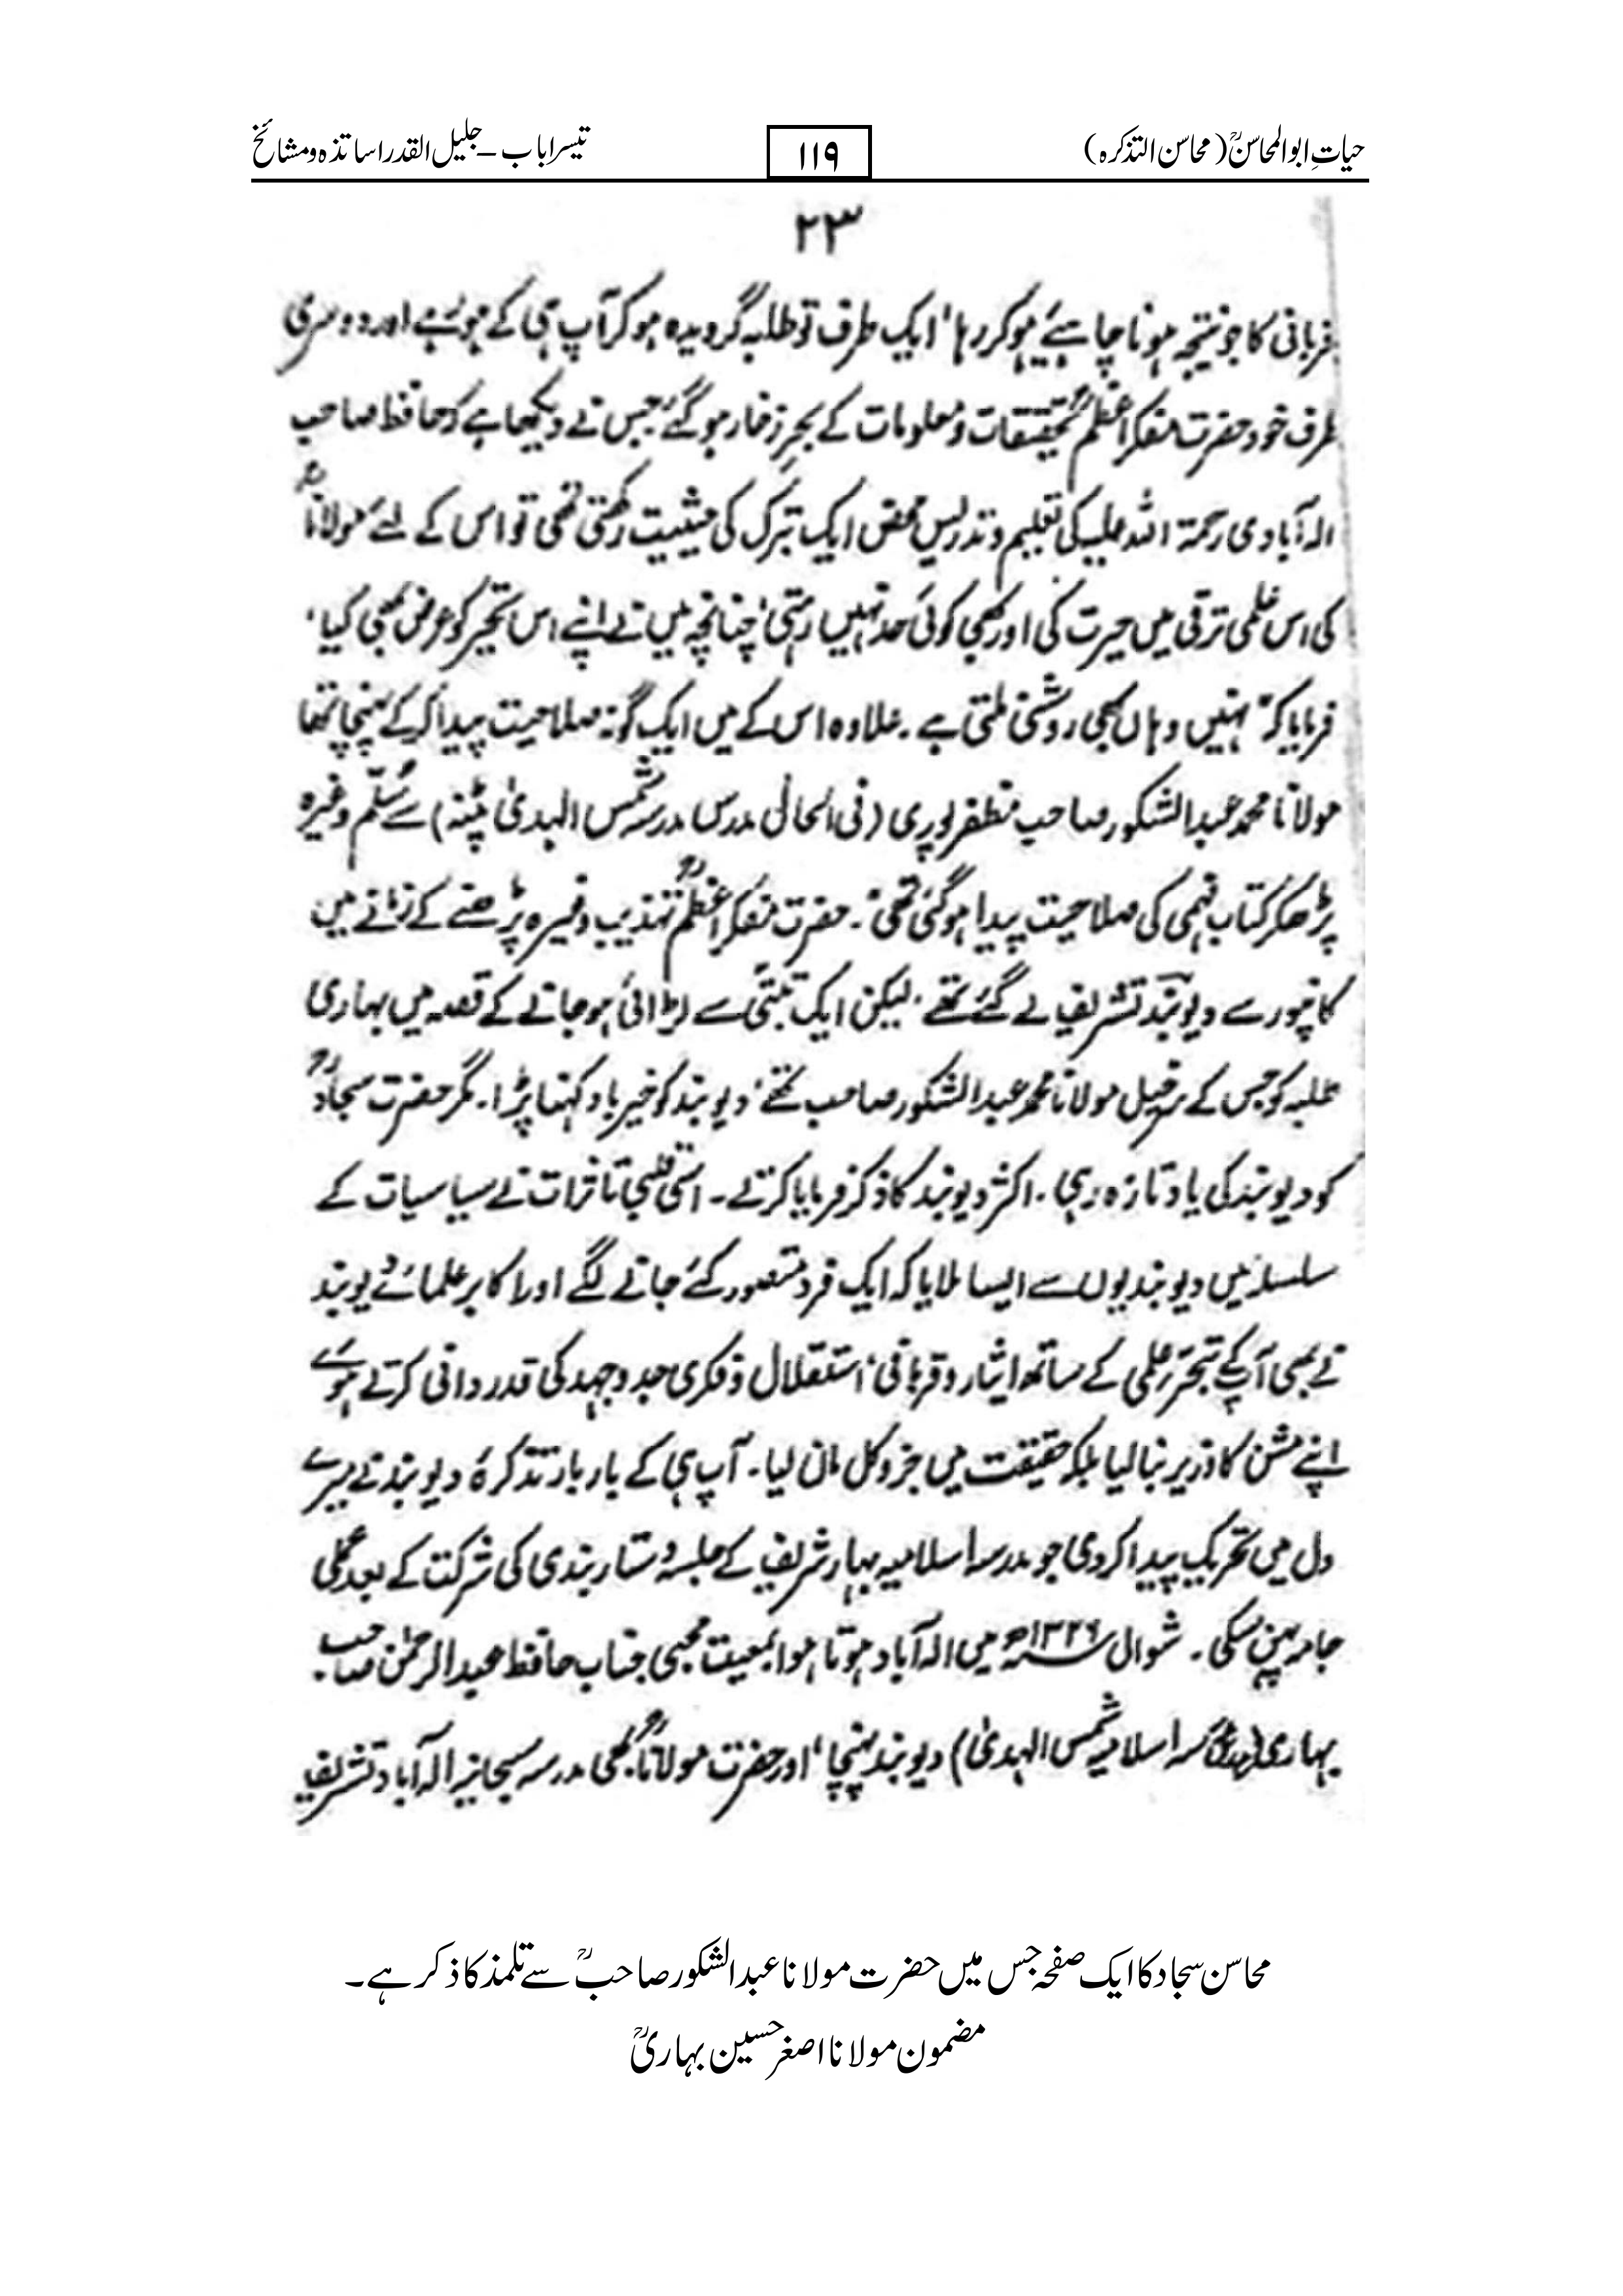 حیاتِ ابوالمحاسنؒ (محاسن التذکرہ)
۱۱۹
تیسرا باب – جلیل القدر اساتذہ و مشائخ
۲۳
قربانی کا جو نتیجہ ہونا چاہئے ہو کر رہا، ایک طرف تو طلبہ گرویدہ ہو کر آپ ہی کے ہو رہے اور دوسری
طرف خود حضرت مفکر اعظمؒ تحقیقات و معلومات کے بحرِ زخار ہو گئے جس نے دیکھا ہے کہ حافظ صاحب
الہ آبادی رحمۃ اللہ علیہ کی تعلیم و تدریس محض ایک تبرک کی حیثیت رکھتی تھی تو اس کے لئے مولاناؒ
کی اس علمی ترقی میں حیرت کی اور بھی کوئی حد نہیں رہتی، چنانچہ میں نے اپنے اس تحیر کو عرض بھی کیا،
فرمایا کہ "نہیں وہاں بھی روشنی ملتی ہے۔ علاوہ اس کے میں ایک گونہ صلاحیت پیدا کر کے پہنچا تھا
مولانا محمد عبدالشکور صاحب مظفرپوری (فی الحال مدرس مدرسہ شمس الہدیٰ پٹنہ) سے سُلّم وغیرہ
پڑھ کر کتاب فہمی کی صلاحیت پیدا ہو گئی تھی"۔ حضرت مفکر اعظمؒ تہذیب وغیرہ پڑھنے کے زمانے میں
کانپور سے دیوبند تشریف لے گئے تھے، لیکن ایک تبتی سے لڑائی ہو جانے کے قصہ میں بہاری
طلبہ کو جس کے سرخیل مولانا محمد عبدالشکور صاحب تھے، دیوبند کو خیرباد کہنا پڑا۔ مگر حضرت سجادؒ
کو دیوبند کی یاد تازہ رہی۔ اکثر دیوبند کا ذکر فرمایا کرتے۔ اسی قلبی تاثرات نے سیاسیات کے
سلسلہ میں دیوبندیوں سے ایسا ملایا کہ ایک فرد متصور کئے جانے لگے اور اکابر علمائے دیوبند
نے بھی آپ کے تبحر علمی کے ساتھ ایثار و قربانی، استقلال و فکری جد و جہد کی قدردانی کرتے ہوئے
اپنے مشن کا وزیر بنا لیا بلکہ حقیقت میں جزو کل مان لیا۔ آپ ہی کے بار بار تذکرۂ دیوبند نے میرے
دل میں تحریک پیدا کر دی جو مدرسہ اسلامیہ بہار شریف کے جلسہ دستار بندی کی شرکت کے بعد عملی
جامہ پہن سکی۔ شوال ۱۳۲۶ھ میں الہ آباد ہوتا ہوا بمعیت محبی جناب حافظ عبدالرحمٰن صاحب
بہاری مدرسہ اسلامیہ شمس الہدیٰ) دیوبند پہنچا، اور حضرت مولاناؒ بھی مدرسہ سبحانیہ الہ آباد تشریف
محاسن سجاد کا ایک صفحہ جس میں حضرت مولانا عبدالشکور صاحبؒ سے تلمذ کا ذکر ہے۔
مضمون مولانا اصغر حسین بہاریؒ